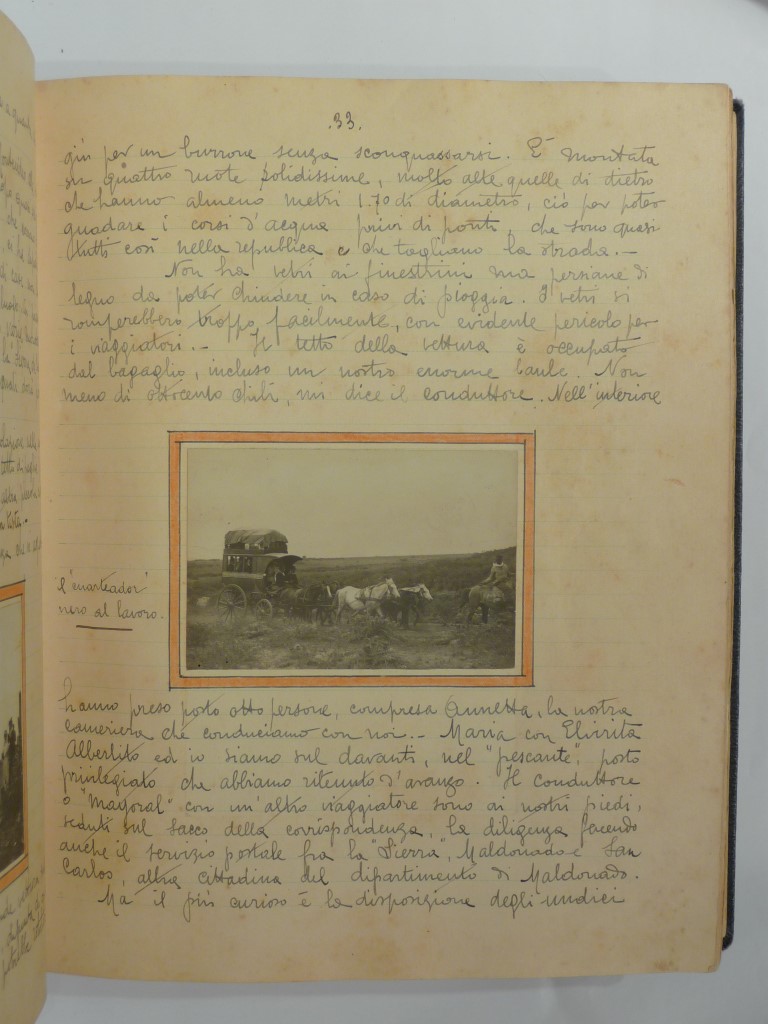 .33.
giù per un burrone senza sconquassarsi. È montata
su quattro ruote solidissime, molto alte quelle di dietro
che hanno almeno metri 1.70 di diametro, ciò per poter
guadare i corsi d'acqua privi di ponti, che sono quasi
tutti così nella repubblica e che tagliano la strada.-
Non ha vetri ai finestrini ma persiane di
legno da poter chiudere in caso di pioggia. I vetri si
romperebbero troppo facilmente, con evidente pericolo per
i viaggiatori.- Il tetto della vettura è occupato
dal bagaglio, incluso un nostro enorme baule. Non
meno di ottocento chili, mi dice il conduttore. Nell'interiore
il "cuarteador"
nero al lavoro.
hanno preso posto otto persone, compresa Annetta, la nostra
cameriera che conduciamo con noi.- Maria con Elvirita
Albertito ed io siamo sul davanti, nel "pescante", posto
privilegiato che abbiamo ritenuto d'avanzo. Il conduttore
o "Mayoral" con un'altro viaggiatore sono ai nostri piedi,
seduti sul sacco della corrispondenza, la diligenza facendo
anche il servizio postale fra la "Sierra", Maldonado e San
Carlos, altra cittadina del dipartimento di Maldonado.
Ma il più curioso è la disposizione degli undici